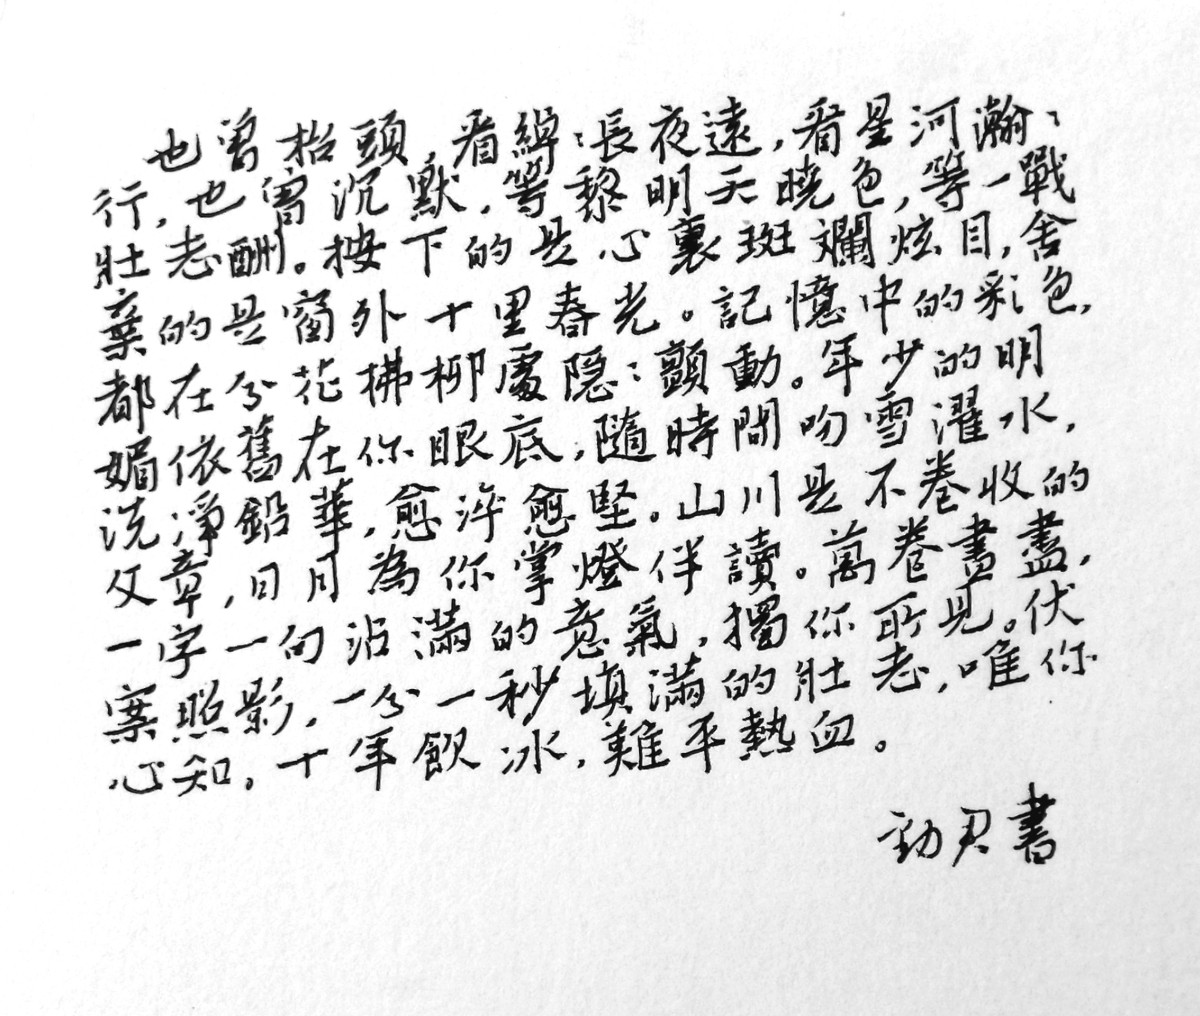 也曾抬頭，看綽：長夜遠，看星河瀚：
行，也曾沉默，等黎明天曉色，等一戰
壯志酬。按下的是心裏斑斕炫目，舍
棄的是窗外十里春光。記憶中的彩色，
都在分花拂柳處隱：顫動。年少的明
媚依舊在你眼底，隨時間吻雪濯水，
洗淨鉛華，愈淬愈堅。山川是不卷收的
文章，日月為你掌燈伴讀。萬卷書盡，
一字一句沾滿的意氣，獨你所見。伏
案照影，一分一秒填滿的壯志，唯你
心知。十年飲冰，難平熱血。
勁君書